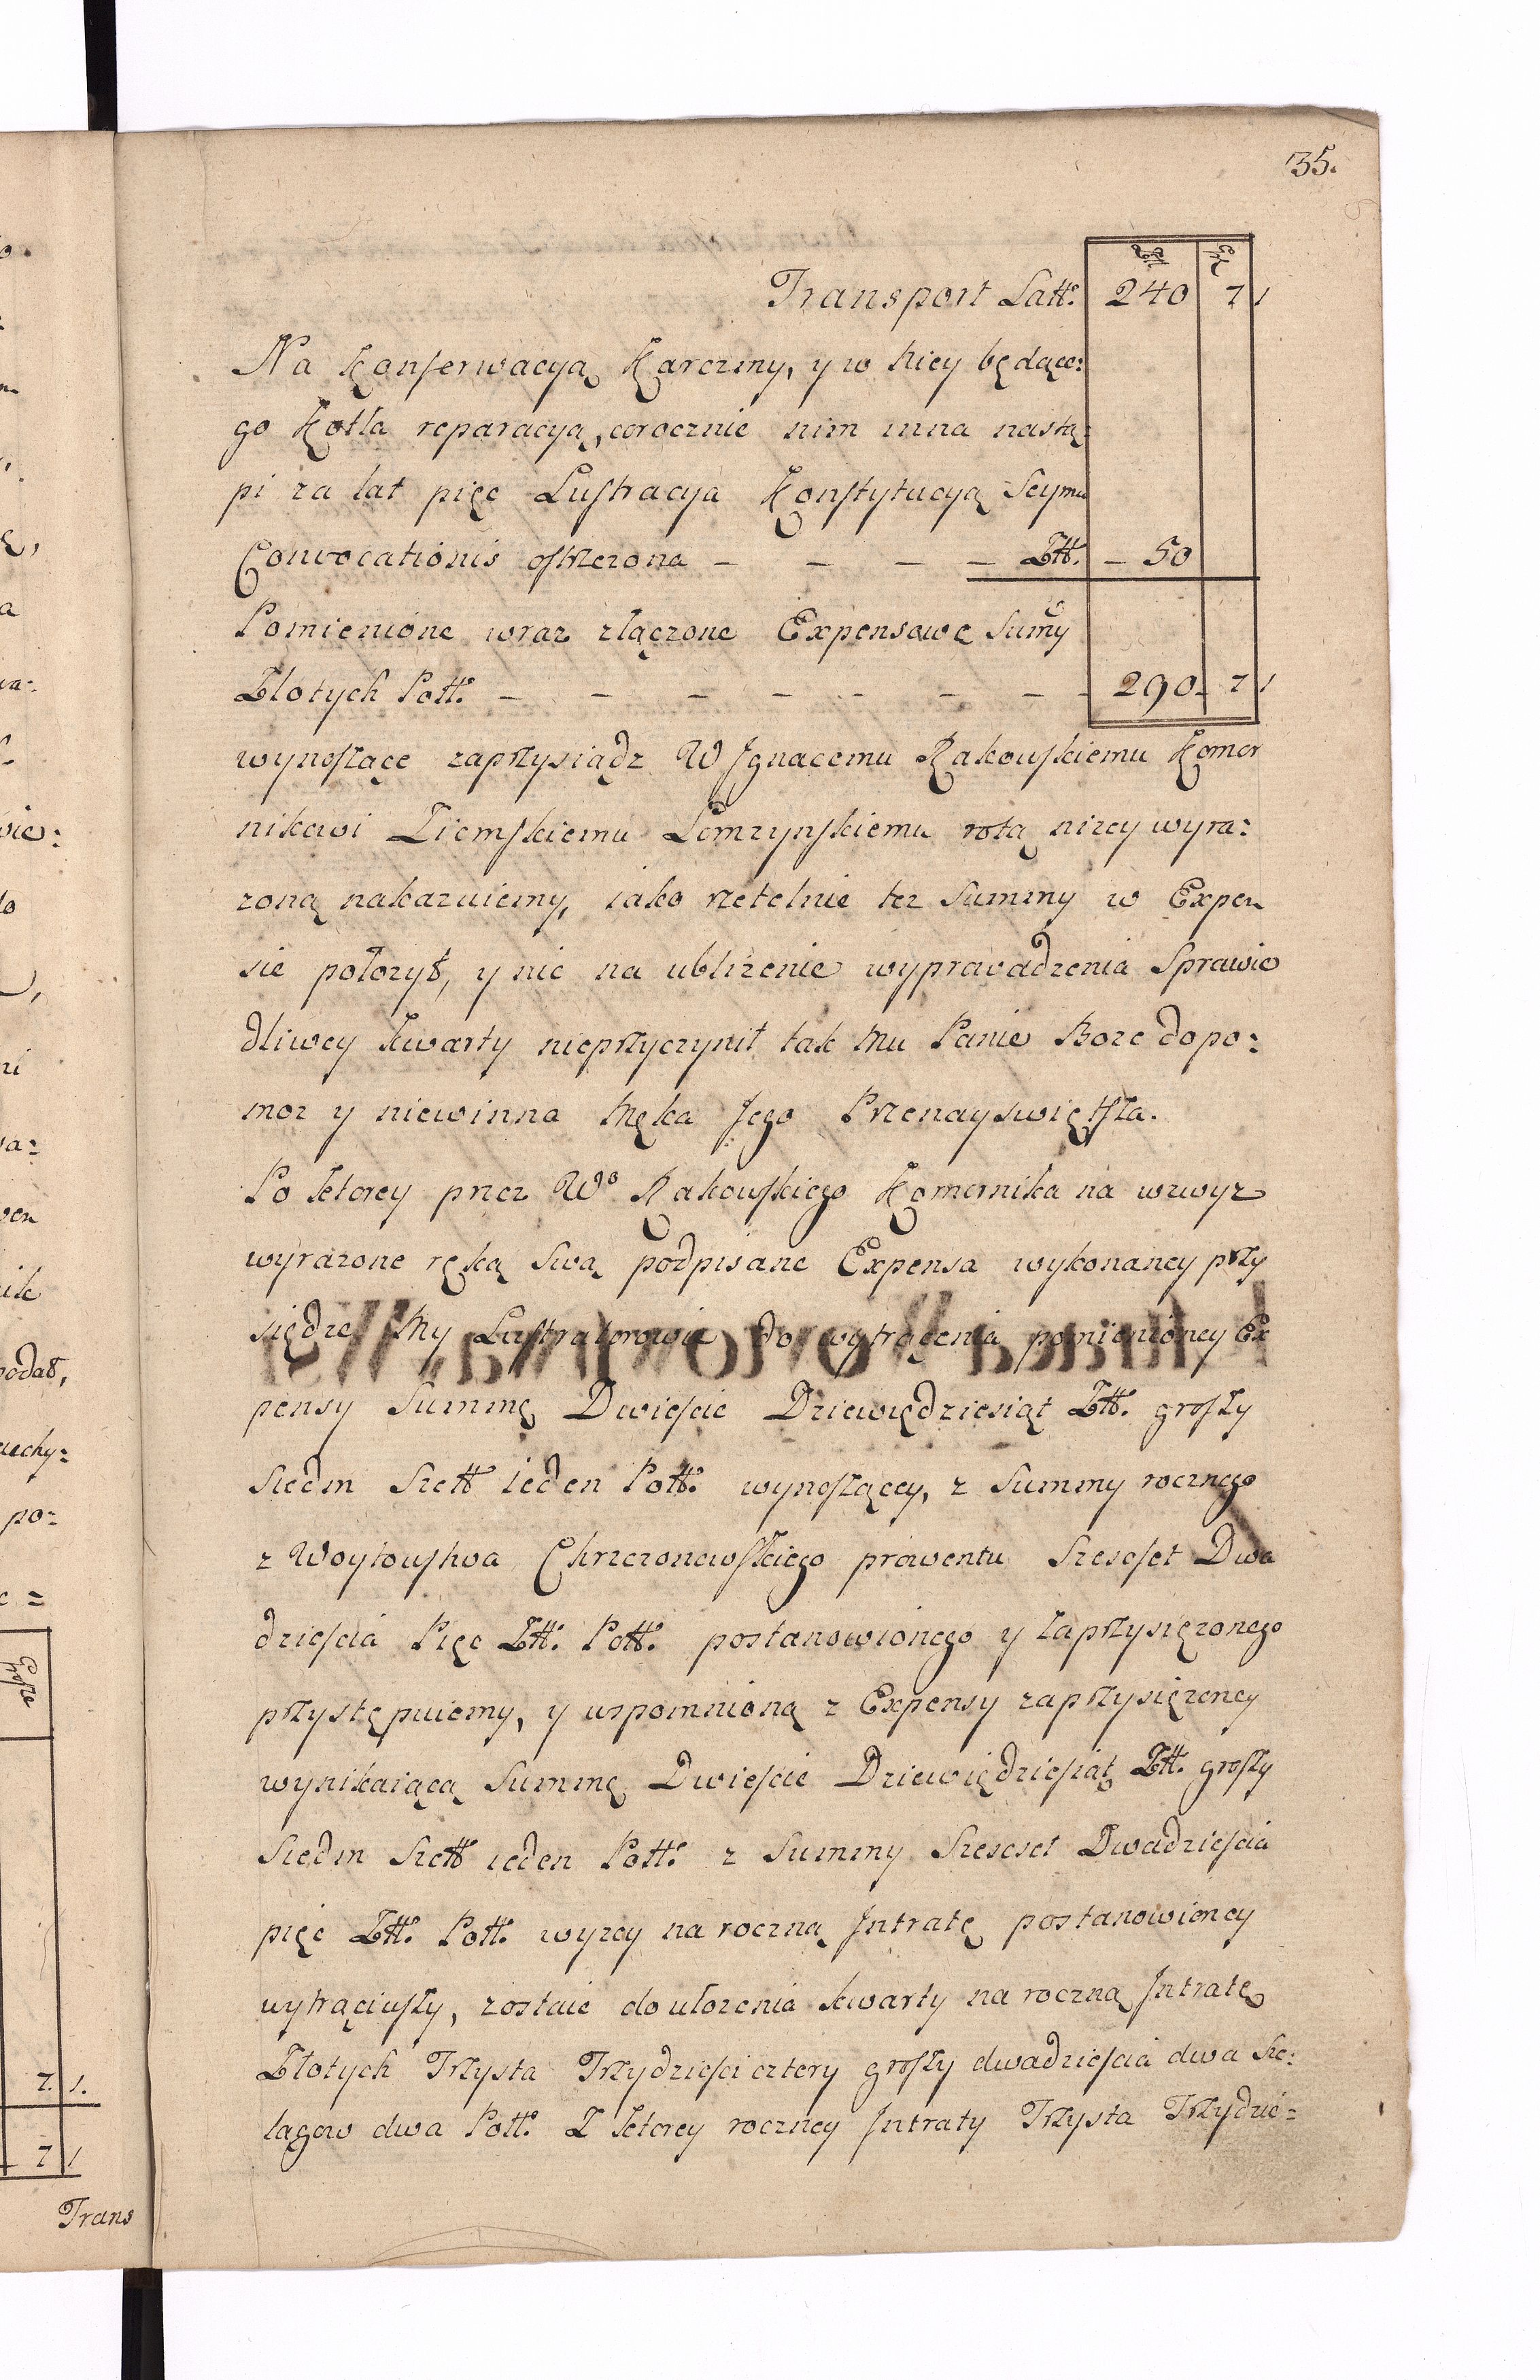 35.
Transport Latt. 240 7 1
Na Konserwacyą Karczmy, y w Niey będące:
go Kotła reparacyą, corocznie nim inna nastą:
pi za lat pięc Lustracya Konstytucyą Seymu
Convocationis ostrzezona — — — — Ztt. — 50
Pomienione wraz złączone Expensowe Sumy
Złotych Poll. — — — — — — — 290. 7 1
wynoszące zaprzysiądz W Jgnacemu Rakowskiemu Komor
nikowi Ziemskiemu Łomzynskiemu rotą nizey wyra:
zoną nakazuiemy, iako rzetelnie tez Summy w Expen
sie połozył, y nic na ublizenie wyprawadzenia Sprawie
dliwey kwarty nieprzyczynił tak Mu Panie Boze dopo:
moz y niewinna Męka Jego Przenayswiętsza.
Po ktorey przez Wo Rakowskiego Komornika na wzwyz
wyrazone ręką Swą podpisane Expensa wykonaney przy
siędze My Lustratorowie do wytrącenia pomienioney Ex
pensy Summę Dwiescie Dziewiędziesiąt Ztt. groszy
Siedm Szell ieden Poll. wynoszącey, z Summy rocznego
z Woytowstwa Chrzczonowskiego prowentu Szescset Dwa
dziescia Pięc Ztt. Poll. postanowionego y zaprzysięzonego
przystępuiemy, y wspomnioną z Expensy zaprzysięzoney
wynikaiącą Summę Dwiescie Dziewiędziesiąt Ztt. groszy
Siedm Szell ieden Poll. z Summy Szescset Dwadziescia
pięc Ztt. Poll. wyzey na roczną Jntratę postanowioney
wytrąciwszy, zostaie do ułozenia kwarty na roczną Jntratę
Złotych Trzysta Trzydziesci cztery groszy dwadziescia dwa Sze:
lągow dwa Poll. Z ktorey roczney Jntraty Trzysta Trzydzie=
7. 1.
7 1
Trans